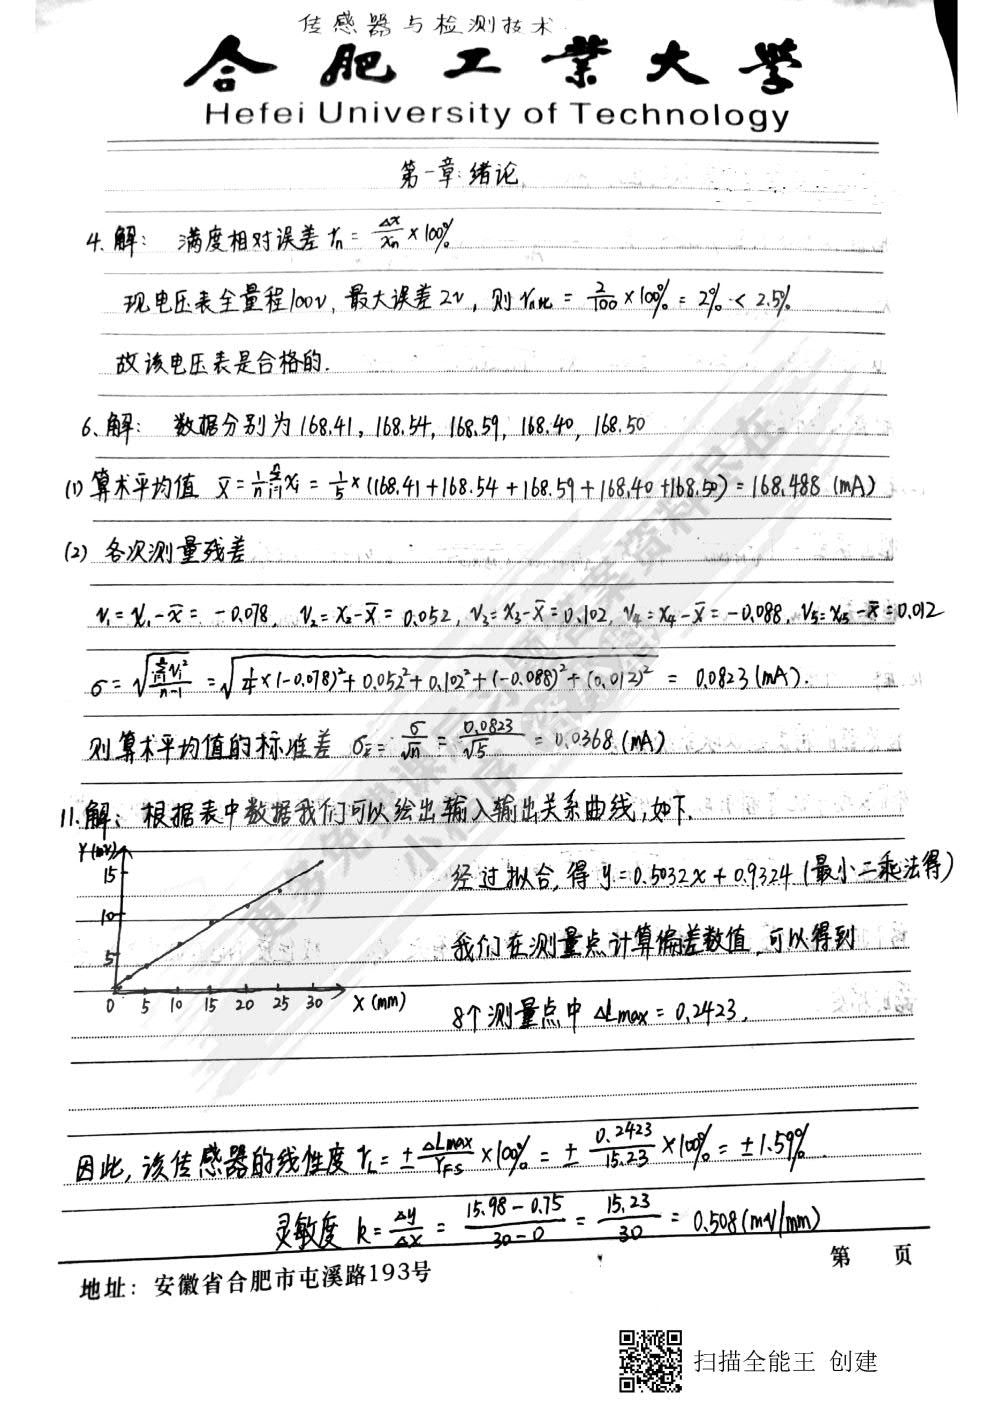 传感器与检测技术
合肥工業大學
Hefei University of Technology
第一章:绪论
4.解: 满度相对误差 rn = Δx/xn × 100%
现电压表全量程100v, 最大误差2v, 则 = 2/100 × 100% = 2% < 2.5%
故该电压表是合格的.
6、解: 数据分别为 168.41, 168.54, 168.59, 168.40, 168.50
(1) 算术平均值 x̄ = 1/n Σ(i=1..n) xi = 1/5 × (168.41+168.54+168.59+168.40+168.50) = 168.488 (mA)
(2) 各次测量残差
v₁=x₁-x̄ = -0.078, v₂=x₂-x̄ = 0.052, v₃=x₃-x̄=0.102, v₄=x₄-x̄=-0.088, v₅=x₅-x̄=0.012
σ = √(Σ vi²/(n-1)) = √(1/4×(-0.078)²+0.052²+0.102²+(-0.088)²+(0.012)²) = 0.0823(mA).
则算术平均值的标准差 σx̄ = σ/√n = 0.0823/√5 = 0.0368 (mA)
11.解: 根据表中数据我们可以绘出输入输出关系曲线,如下.
Y(mv)
15
10
5
0 5 10 15 20 25 30 X(mm)
经过拟合,得 y=0.5032x+0.9324 (最小二乘法得)
我们在测量点计算偏差数值,可以得到
8个测量点中 ΔLmax = 0.2423,
因此,该传感器的线性度 rL = ± ΔLmax/YFS ×100% = ± 0.2423/15.23 ×100% = ±1.59%.
灵敏度 k = Δy/Δx = (15.98-0.75)/(30-0) = 15.23/30 = 0.508(mv/mm)
第 页
地址: 安徽省合肥市屯溪路193号
扫描全能王 创建